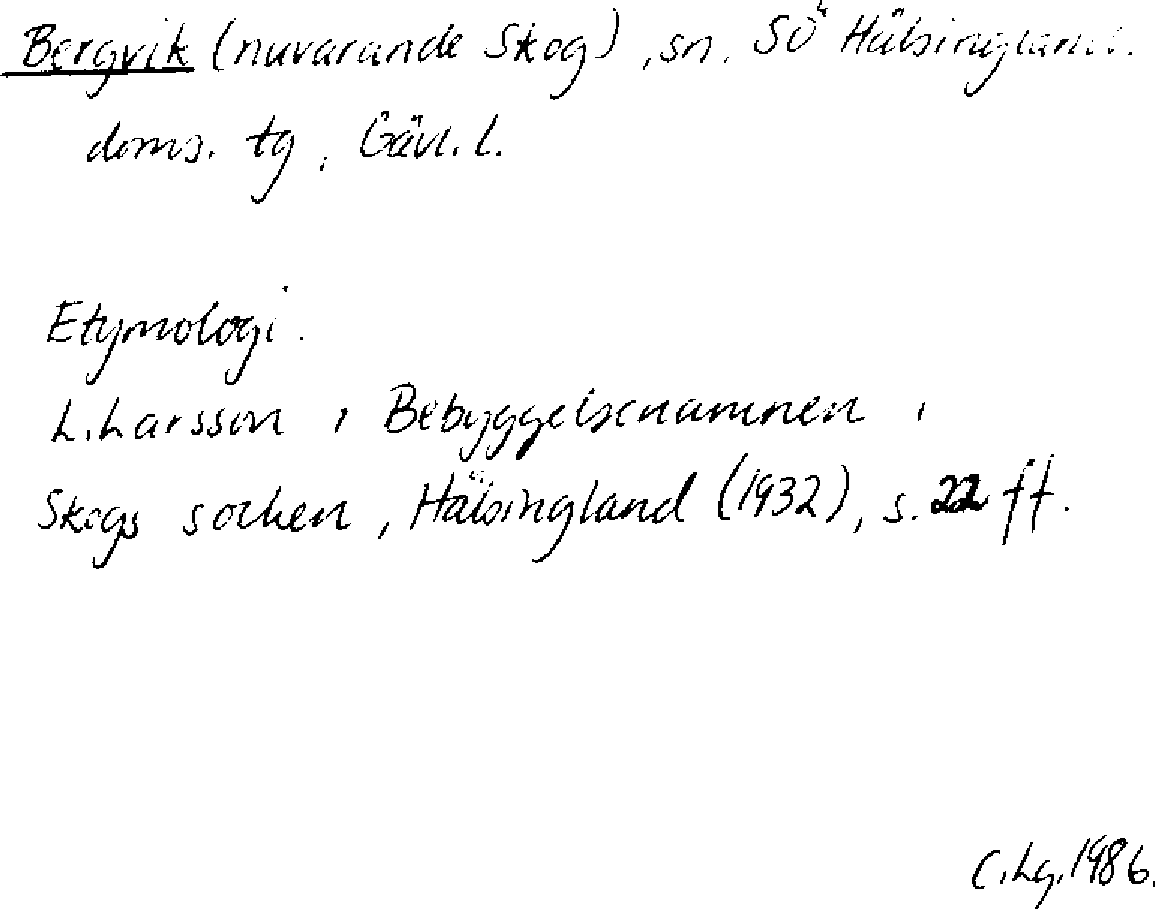 Bergvik (nuvarande Skog), sn, SÖ Hälsinglands
doms. tg, Gävl. l.
Etymologi.
L. Larsson, Bebyggelsenamnen i
Skogs socken, Hälsingland (1932), s. 22 ff.
C. Lg. 1986.